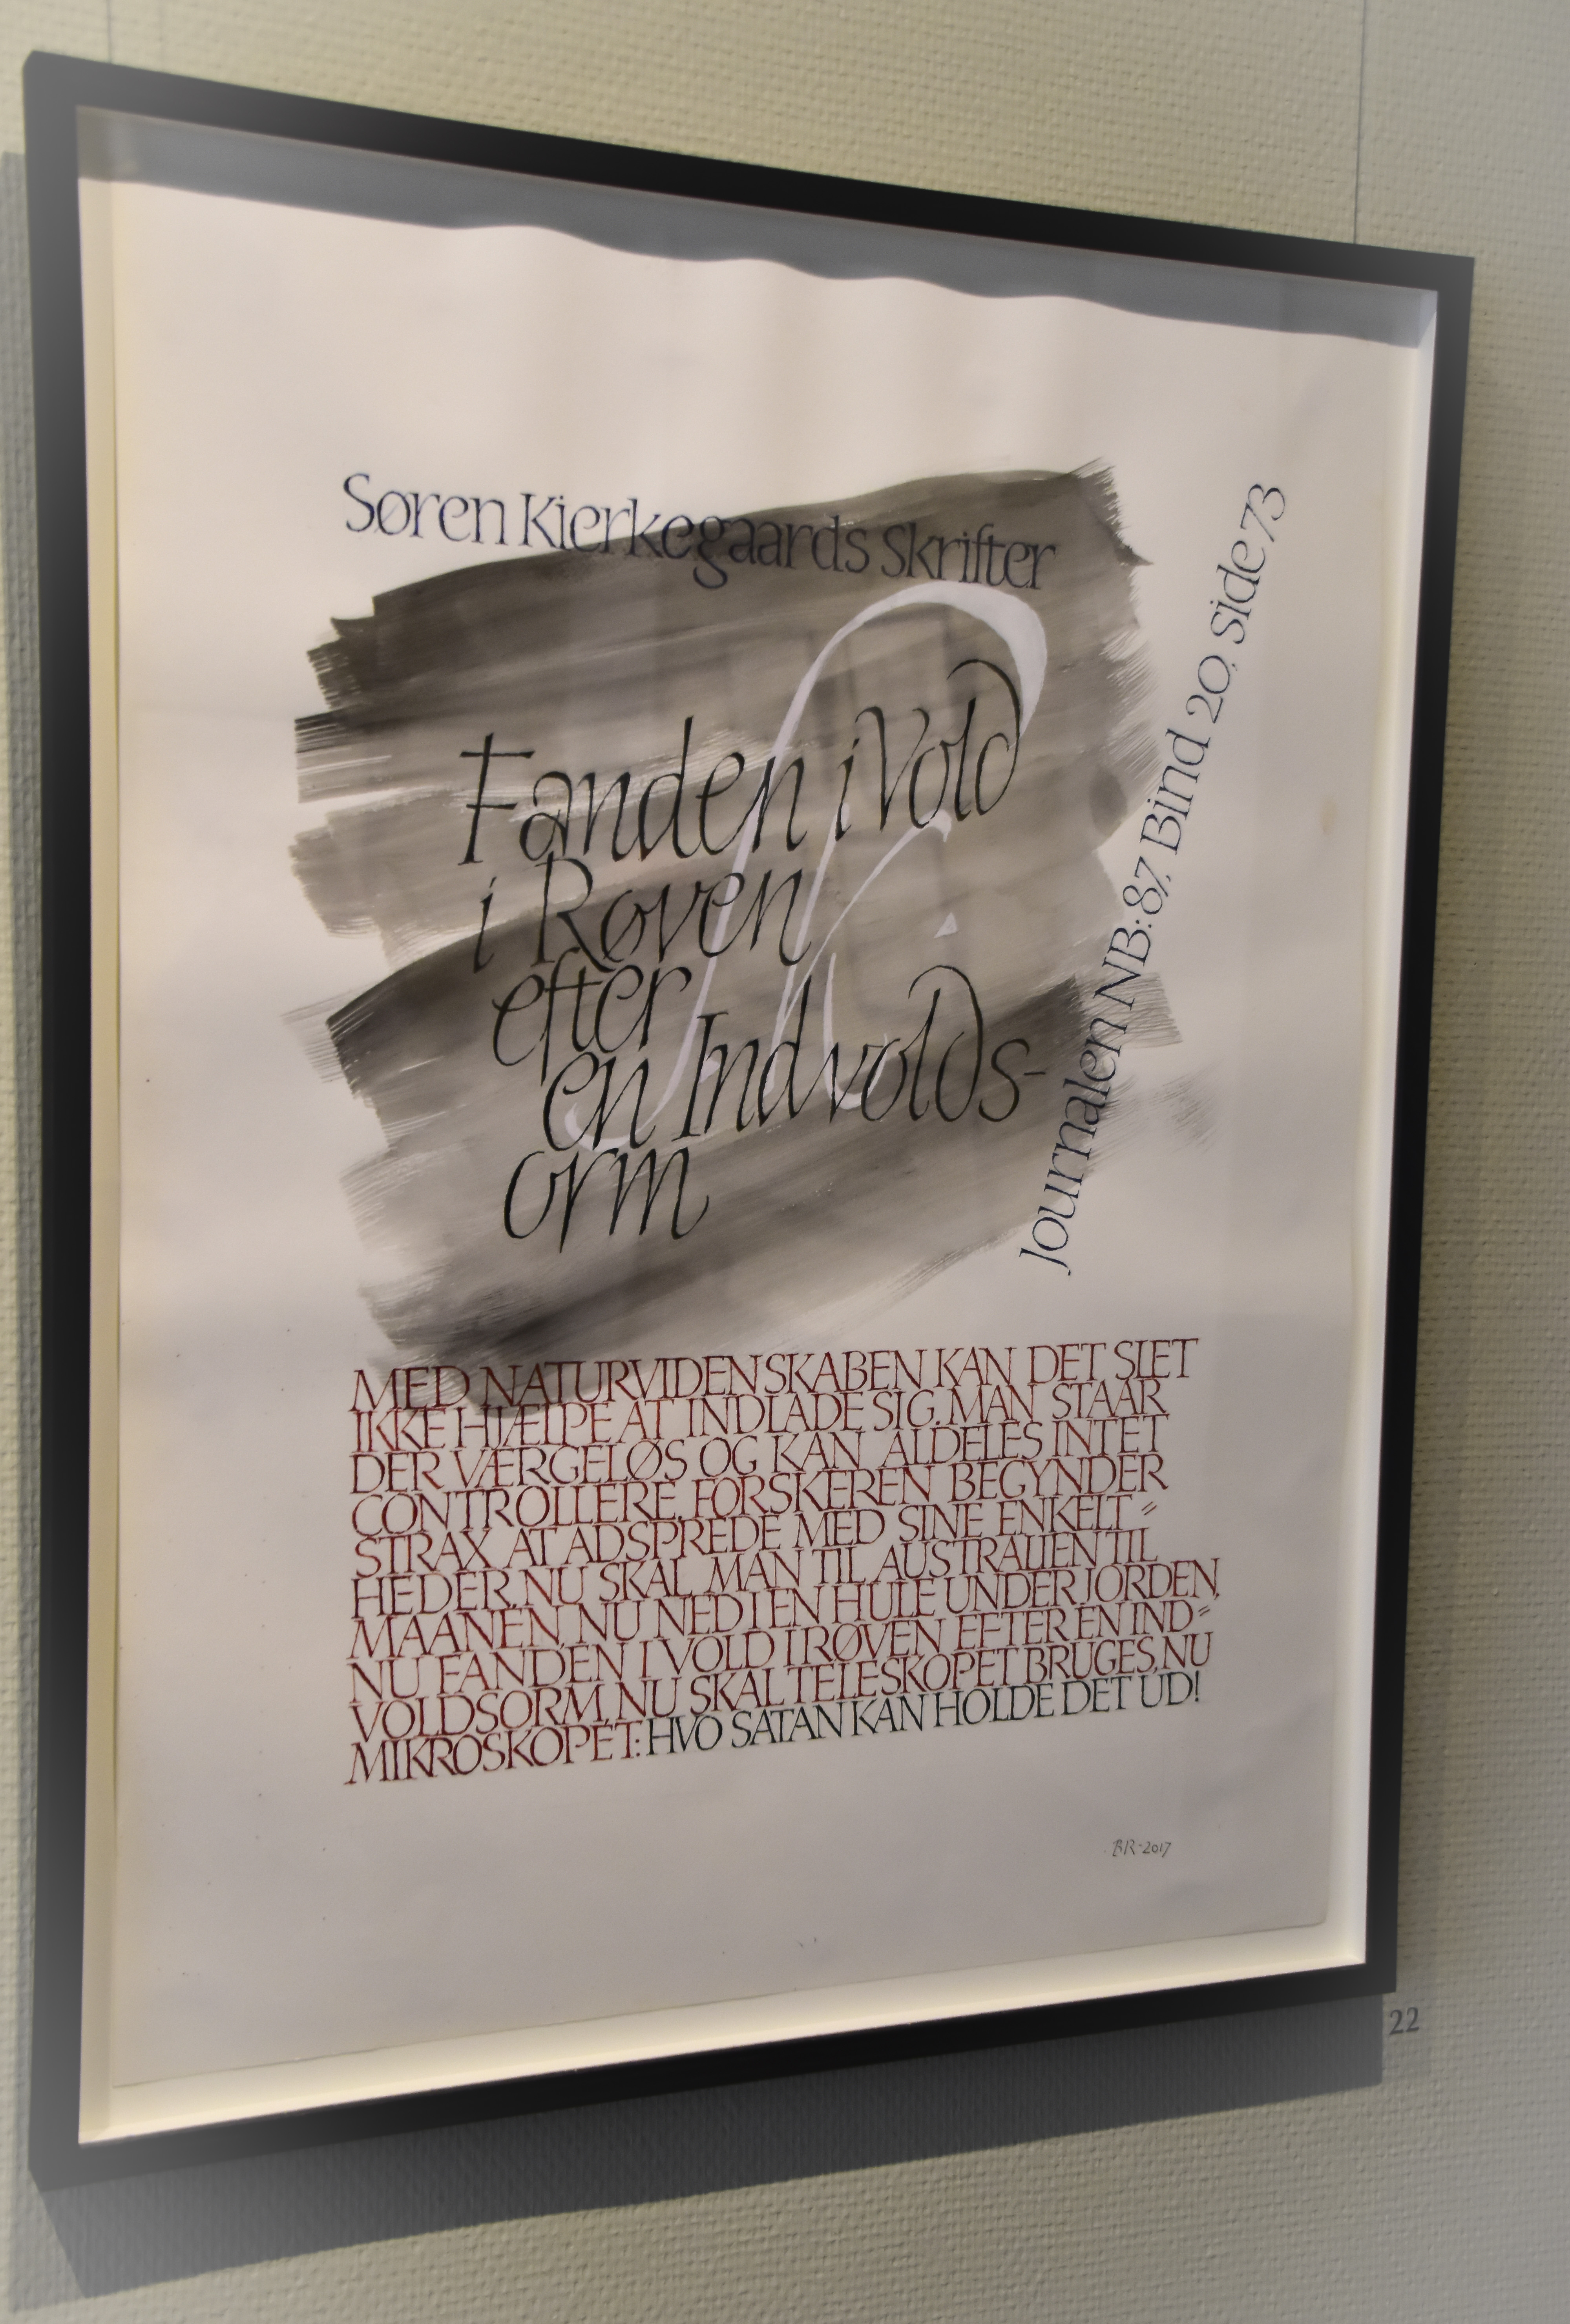 Søren Kierkegaards Skrifter
Fanden i Vold
i Røven
efter
en Indvolds-
orm
Journalen NB:87, Bind 20, side 73
MED NATURVIDENSKABEN KAN DET SLET
IKKE HJÆLPE AT INDLADE SIG. MAN STAAR
DER VÆRGELØS OG KAN ALDELES INTET
CONTROLLERE. FORSKEREN BEGYNDER
STRAX AT ADSPREDE MED SINE ENKELT=
HEDER. NU SKAL MAN TIL AUSTRALIEN TIL
MAANEN, NU NED I EN HULE UNDER JORDEN,
NU FANDEN I VOLD I RØVEN EFTER EN IND=
VOLDSORM, NU SKAL TELESKOPET BRUGES, NU
MIKROSKOPET: HVO SATAN KAN HOLDE DET UD!
BR-2017
22